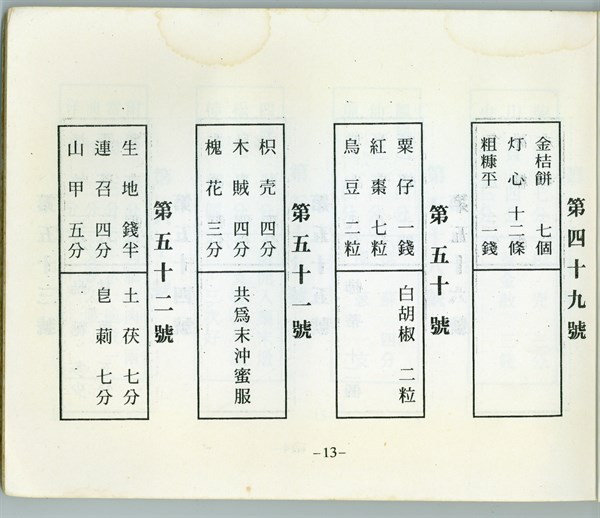 第四十九號
金桔餅 七個
灯心 十二條
粗糠平 一錢
第五十號
粟仔 一錢
紅棗 七粒
烏豆 二粒
白胡椒 二粒
第五十一號
枳壳 四分
木賊 四分
槐花 三分
共爲末沖蜜服
第五十二號
生地 錢半
連召 四分
山甲 五分
土茯 七分
皀莿 七分
-13-